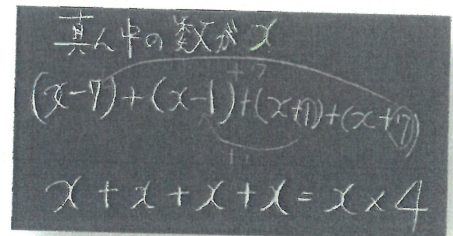 真ん中の数がx
+7
(x-7)+(x-1)+(x+1)+(x+7)
+1
x+x+x+x=x×4